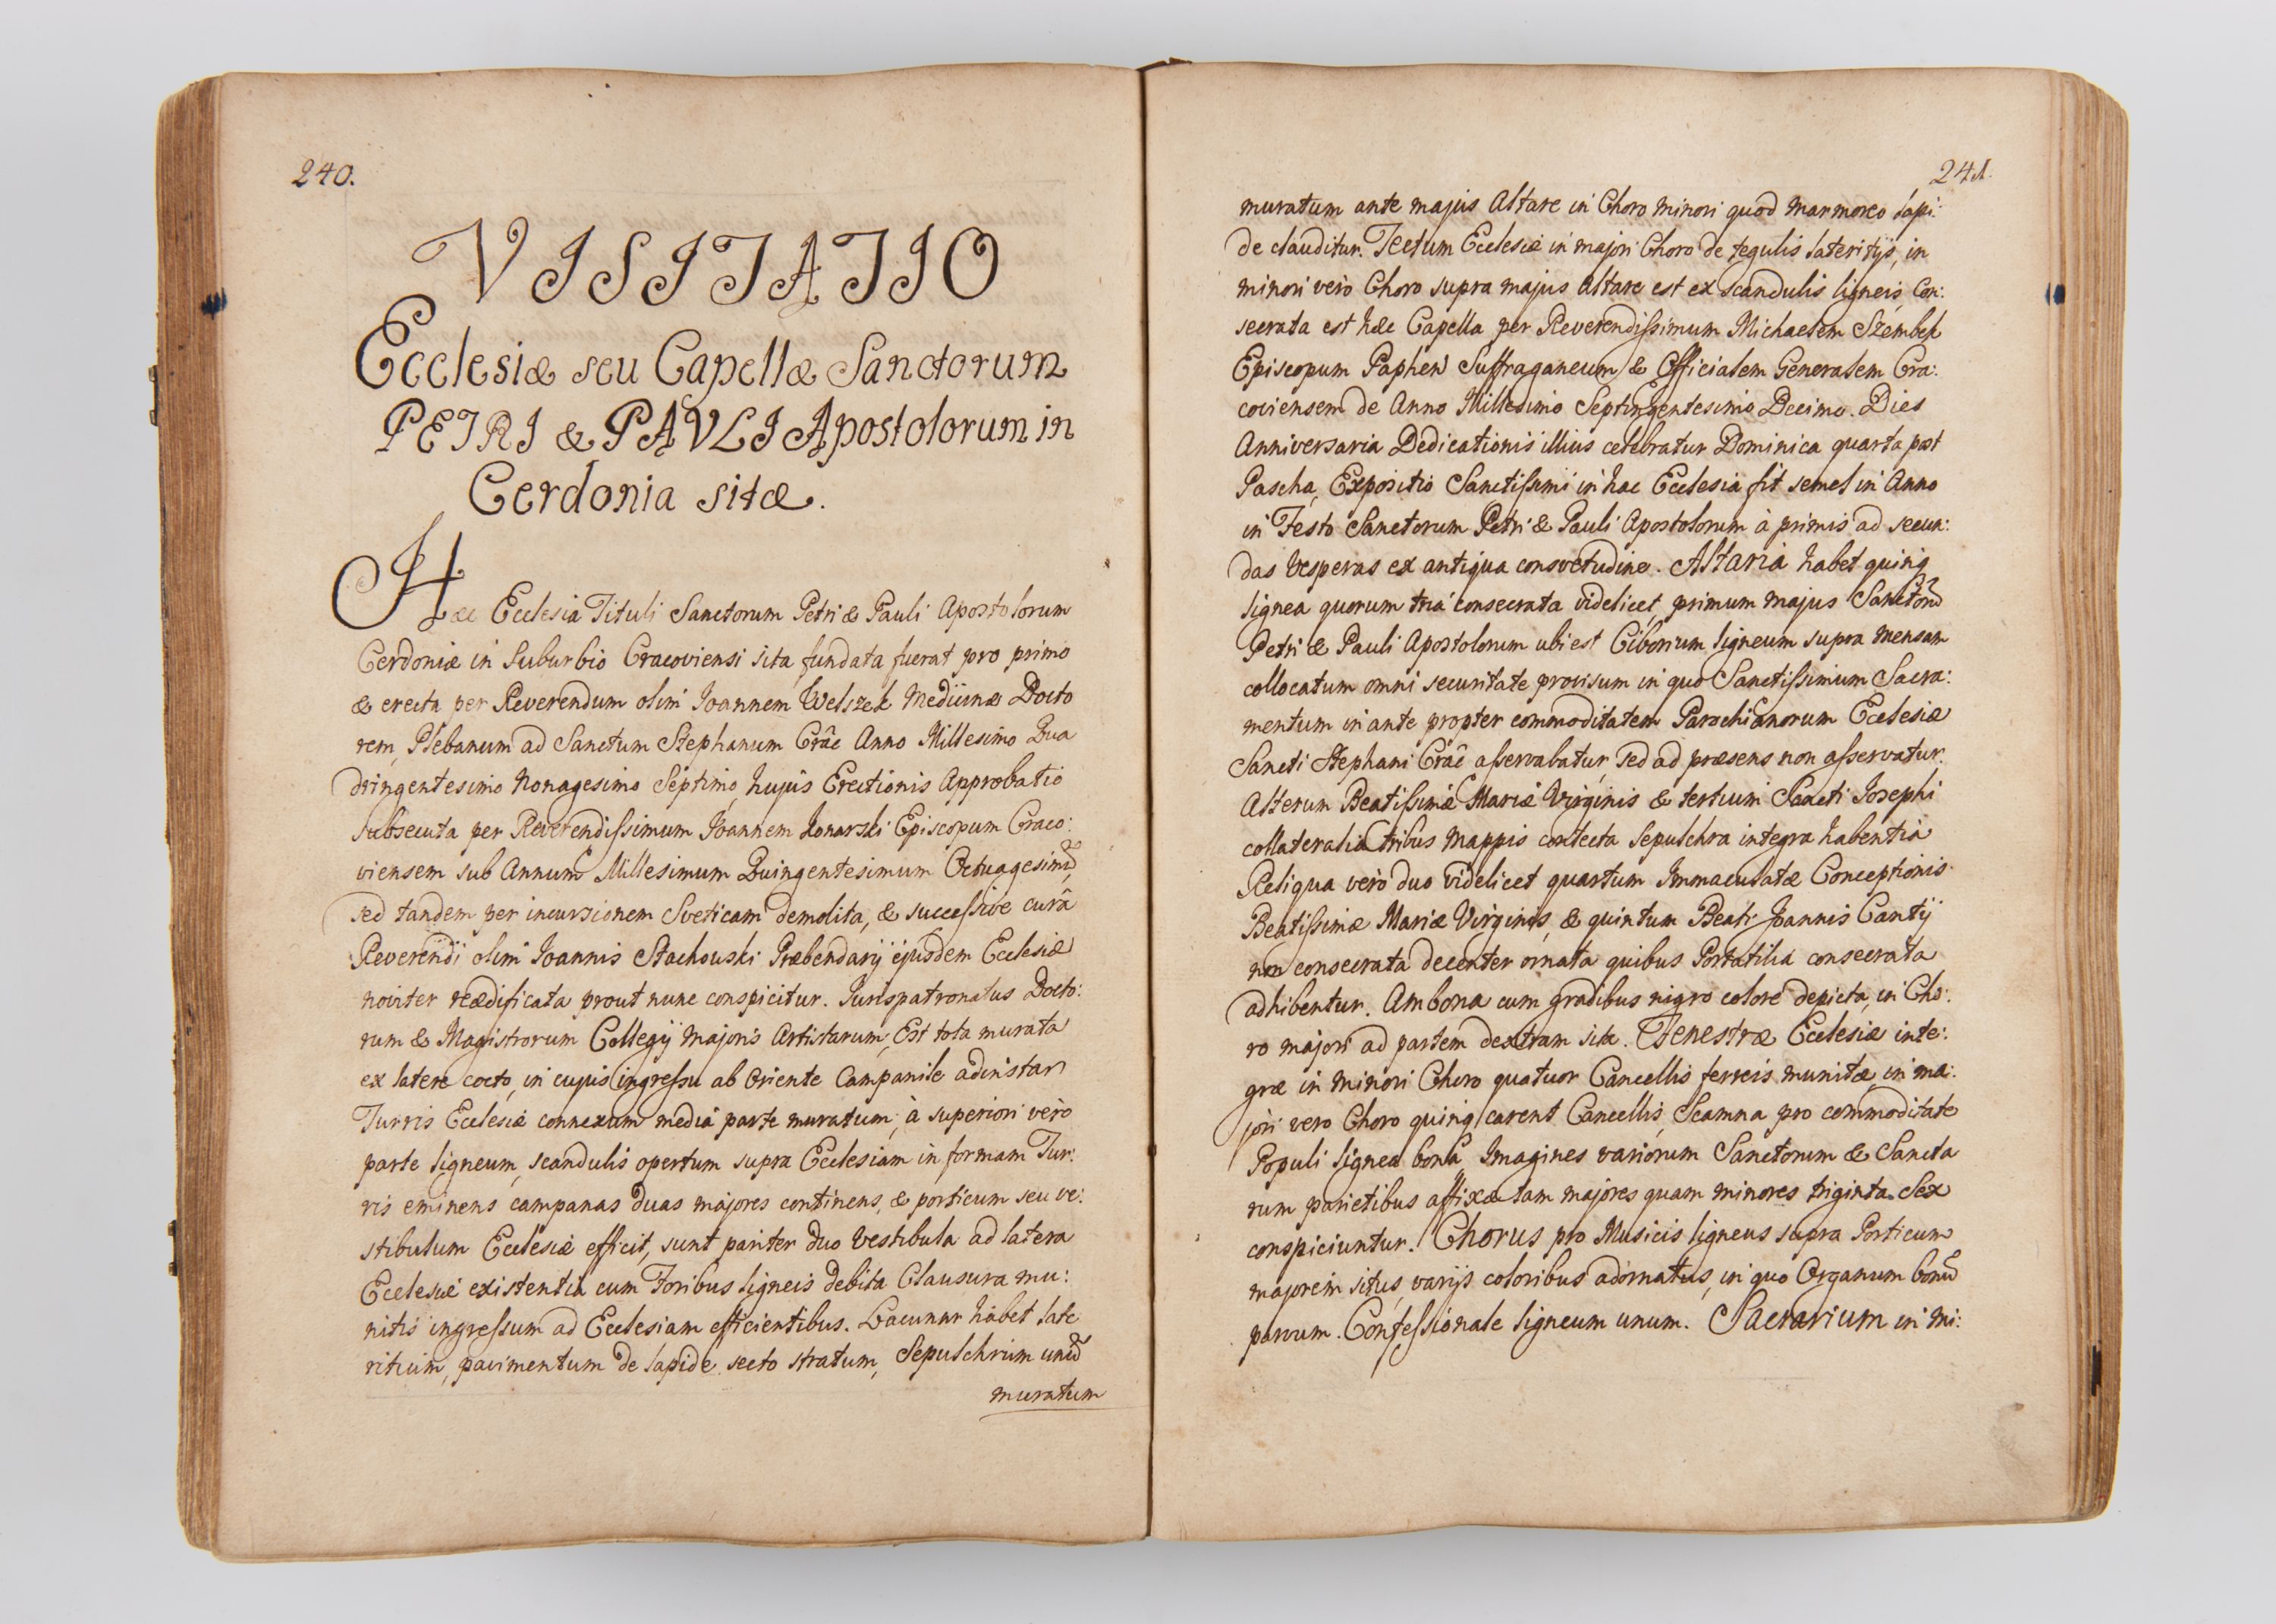 240.
VISITATIO
Ecclesiæ seu Capellæ Sanctorum
PETRI & PAVLI Apostolorum in
Cerdonia sitæ.
Hæc Ecclesia Tituli Sanctorum Petri & Pauli Apostolorum
Cerdoniæ in Suburbio Cracoviensi sita fundata fuerat pro primo
& erecta per Reverendum olim Joannem Welszek Medicinæ Docto
rem, Plebanum ad Sanctum Stephanum Crâc Anno Millesimo Qua
dringentesimo Nonagesimo Septimo, hujus Erectionis Approbatio
subsecuta per Reverendissimum Joannem Konarski Episcopum Craco:
viensem sub Annum Millesimum Quingentesimum Octuagesimũ,
sed tandem per incursionem Sveticam demolita, & successive curâ
Reverendi olim Joannis Stachowski Præbendarij ejusdem Ecclesiæ
noviter reædificata prout nunc conspicitur. Jurispatronatus Docto:
rum & Magistrorum Collegij Majoris Artistarum, Est tota murata
ex latere cocto, in cujus ingressu ab Oriente Campanile adinstar
Turris Ecclesiæ connexum media parte muratum, à superiori verò
parte ligneum, scandulis opertum supra Ecclesiam in formam Tur:
ris eminens campanas duas majores continens, & porticum seu ve:
stibulum Ecclesiæ efficit, sunt pariter duo Vestibula ad latera
Ecclesiæ existentia cum Foribus ligneis debita Clausura mu:
nitis ingressum ad Ecclesiam efficientibus. Lacunar habet late
ritium, pavimentum de lapide secto stratum, Sepulchrum unũ
muratum
241.
muratum ante majus Altare in Choro minori quod marmoreo lapi:
de clauditur. Tectum Ecclesiæ in majori Choro de tegulis lateritijs, in
minori verò Choro supra majus Altare est ex scandulis ligneis, Con:
secrata est hæc Capella per Reverendissimum Michaelem Szembek
Episcopum Paphen Suffraganeum & Officialem Generalem Cra:
coviensem de Anno Millesimo Septingentesimo Decimo. Dies
Anniversaria Dedicationis illius celebratur Dominica quarta post
Pascha, Expositio Sanctissimi in hac Ecclesia fit semel in Anno
in Festo Sanctorum Petri & Pauli Apostolorum à primis ad secun:
das Vesperas ex antiqua consvetudine. Altaria habet quinq
lignea quorum tria consecrata videlicet primum majus Sanctorũ
Petri & Pauli Apostolorum ubi est Ciborium ligneum supra mensam
collocatum omni securitate provisum in quo Sanctissimum Sacra:
mentum in ante propter commoditatem Parochianorum Ecclesiæ
Sancti Stephani Crâc asservabatur, sed ad præsens non asservatur.
Alterum Beatissimæ Mariæ Virginis & tertium Sancti Josephi
collateralia tribus mappis contecta Sepulchra integra habentia
Reliqua verò duo videlicet quartum Immaculatæ Conceptionis
Beatissimæ Mariæ Virginis, & quintum Beati Joannis Cantij
non consecrata decenter ornata quibus Portatilia consecrata
adhibentur. Ambona cum gradibus nigro colore depicta, in Cho:
ro majori ad partem dextram sita. Fenestræ Ecclesiæ inte:
græ in minori Choro quatuor Cancellis ferreis munitæ, in ma:
jori vero Choro quinq carent Cancellis, Scamna pro commoditate
Populi lignea bona, Imagines variorum Sanctorum & Sancta
rum parietibus affixæ tam majores quam minores triginta Sex
conspiciuntur. Chorus pro Musicis ligneus supra Porticum
majorem situs, varijs coloribus adornatus, in quo Organum bonũ
parvum. Confessionale ligneum unum. Sacrarium in mi: